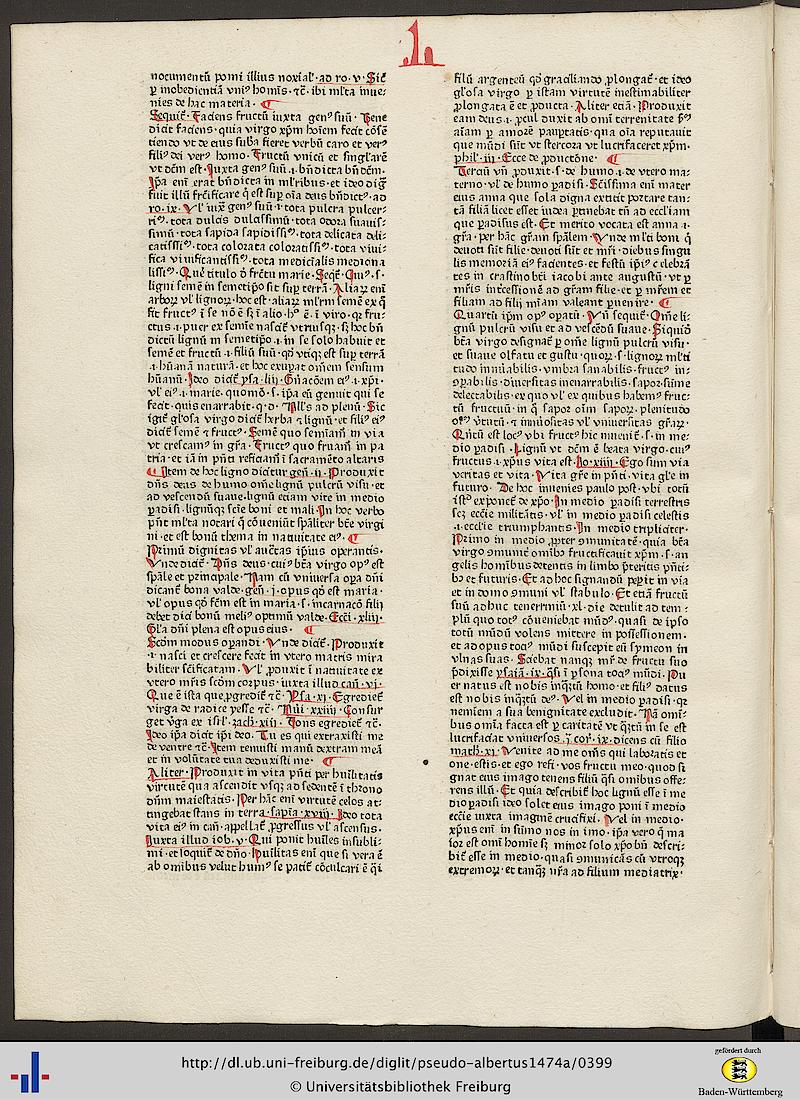 L
nocumentū pomi illius noxial᷎· ad ro· v· Sic̄
ꝑ inobedientiā vniꝰ homīs· ⁊c̄· ibi ml̄ta inue-
nies de hac materia· ¶
Sequit᷎· Faciens fructū iuxta genꝰ suū· Bene
dicit faciens· quia virgo xp̄m hoīem fecit cōsē
tiendo vt de eius subā fieret verbū caro et verꝰ
filiꝰ dei verꝰ homo· Fructū vnicū et singl̄arē
vt dc̄m est· Juxta genꝰ suū·i· bn̄dicta bn̄dcm̄·
Jp̄a em̄ erat bn̄dicta in ml̄ribus· et ideo diḡ
fuit illū fr̄cificare q̄ est suꝑ oīa deus bn̄dict᷒· ad
ro· ix· Vl̄ iuxͣ genꝰ suū·i· tota pulcra pulcer-
riᵒ· tota dulcis dulcissimū· tota odora suauis-
simū· tota sapida sapidissiᵒ· tota delicata deli-
catisssiᵒ· tota colorata coloratissiᵒ· tota viui-
fica viuificantissiᵒ· tota medicīalis mediciona
lissiᵒ· Quē titulo ō fr̄ctu marie· Seqt᷎· Cuiꝰ·s·
ligni semē in semetip̄o sit suꝑ terrā· Aliaꝝ em̄
arboꝝ vl̄ lignoꝝ· hoc est· aliaꝝ ml̄rm semē ex q̄
fit fruct᷒ ī se nō ē sꝫ ī alio· hᵒ ē· ī viro· qꝛ fru-
ctus·i· puer ex semīe nascit᷎ vtriusqꝫ· sꝫ hoc bn̄
dictū lignū in semetip̄o·i· in se solo habuit et
semē et fructū·i· filiū suū· qd̄ vtiqꝫ est suꝑ terrā
·i· hūanā naturā· et hoc exupat om̄em sensum
hūanū· Jdeo dicit᷎ ysa· liij· Gn̄acōem eiꝰ·i· xp̄i·
vl̄ eiꝰ·i· marie· quomō·s· ip̄a eū genuit qui se
fecit· quis enarrabit· q· d· Null᷒s ad plenū· Sic
igit᷎ gl̄osa virgo dicit᷎ herba ⁊ lignū· et filiꝰ eiꝰ
dicit᷎ semē ⁊ fruct᷒· Semē quo semīam᷒ in via
vt crescamꝰ in gr̄a· Fruct᷒ quo fruam᷒ in pa
tria· et iā in pn̄ti reficiam᷒ ī sacramēto altaris
¶ Jtem de hoc ligno dicitur gen̄· ij· Produxit
dn̄s deus de humo om̄e lignū pulcrū visu· et
ad vescendū suaue· lignū etiam vite in medio
ꝑadisi· lignūqꝫ scīe boni et mali· Jn hoc verbo
pn̄t ml̄ta notari q̄ cōueniūt spāliter btē virgi
ni· et est bonū thema in natiuitate eiꝰ· ¶
Primū dignitas vl̄ auct̄as ip̄ius operantis·
Vnde dicit᷎· Dn̄s deus· cuiꝰ btā virgo opꝰ est
sp̄ale et principale· Nam cū vniuersa opa dn̄i
dicant᷎ bona valde· gen̄· j· opus qd̄ est maria·
vl̄ opus qd̄ fc̄m est in maria·s· incarnacō filij
debet dici bonū meliꝰ optimū valde· Ecc̄i· xliij·
Gl̄a dn̄i plena est opus eius· ¶
Scdm̄ modus opandi· Vnde dicit᷎· Produxit
·i· nasci et crescere fecit in vtero matris mira
biliter scificatam· Vl̄ ꝓduxit ī natiuitate ex
vtero mr̄is scm̄ corpus· iuxta illud can̄· vj·
Que ē ista que ꝓgredit᷎ ⁊c̄· Ysa· xj· Egrediet᷎
virga de radice yesse ⁊c̄· Nūi· xxiiij· Consur
get v̄ga ex isrl̄· zach· xiij· Fons egrediet᷎ ⁊c̄·
Jdeo ip̄a dicit ip̄i deo· Tu es qui extraxisti me
de ventre ⁊c̄· Jtem tenuisti manū dextram meā
et in volūtate tua deduxisti me· ¶
Aliter· Produxit in vita pn̄ti per huīlitatis
virtutē qua ascendit vsqꝫ ad sedentē ī throno
dn̄m maiestatis· Per hāc em̄ virtutē celos at-
tingebat stans in terra· sapīa· xviij· Jdeo tota
vita eiꝰ in can̄· appellat᷎ ꝓgressus vl̄ ascensus·
Juxta illud iob· v· Qui ponit huīles in subli-
mi· et loquit᷎ de dn̄o· Huīlitas em̄ que si vera ē
ab omībus velut humꝰ se patit᷎ cōculcari ē q̄i
filū argenteū qd̄ graciliando ꝓlongat᷎· et ideo
gl̄osa virgo ꝑ istam virtutē inestimabiliter
ꝓlongata ē et ꝓducta· Aliter etiā· Produxit
eam deus·i· ꝓcul duxit ab om̄i terrenitate pᵒ
aīam ꝑ amorē pauptatis· qua oīa reputauit
que mūdi sūt vt stercora vt lucrifaceret xp̄m·
phil· iij· Ecce de ꝓductōne· ¶
Terciū vn̄ ꝓduxit·s· de humo·i· de vtero ma-
terno· vl̄ de humo ꝑadisi· Scissima em̄ mater
eius anna que sola digna extitit portare tan-
tā filiā licet esset iudea ꝑtinebat tn̄ ad eccl̄iam
que ꝑadisus est· Et merito vocata est anna·i·
gr̄a· per hāc gr̄am sp̄alem· Vnde ml̄ti boni q̄
deuoti sūt filie· deuoti sūt et mr̄i· diebus singu
lis memoriā eiꝰ facientes· et festū ip̄iꝰ celebrā
tes in crastino bt̄i iacobi ante augustū· vt ꝑ
mr̄is intc̄essionē ad gr̄am filie· et ꝑ mr̄em et
filiam ad filij mīam valeant ꝑuenire· ¶
Quartū ip̄m opꝰ opatū· Vn̄ sequit᷎· Om̄e li-
gnū pulcrū visu et ad vescēdū suaue· Siquid̄
bt̄a virgo designat᷎ ꝑ om̄e lignū pulcrū visu·
et suaue olfatu et gustu· quoꝝ·s· lignoꝝ ml̄ti
tudo innūabilis· vmbra sanabilis· fruct᷒ in-
oꝑabilis· diuersitas inenarrabilis· sapor sūme
delectabilis· ex quo vl̄ ex quibus habem᷒ fruc-
tū fructuū· in q̄ sapor oīm sapoꝝ· plenitudo
oīꝰ vtutū· ⁊ innūositas vl̄ vniuersitas gr̄aꝝ·
Qn̄tū est locꝰ vbi fruct᷒ hic inuenit᷎·s· in me-
dio ꝑadisi· Lignū vt dc̄m ē beata virgo· cuiꝰ
fructus·i· xp̄us vita est· Jo· xiiij· Ego sum via
veritas et vita· Vita gr̄e in pn̄ti· vita gl̄e in
futuro· De hoc inuenies paulo post· vbi totū
istᵈ exponet᷎ de xp̄o· Jn medio ꝑadisi terrestris
scꝫ ecc̄ie militātis· vl̄ in medio ꝑadisi celestis
·i· eccl̄ie triumphantis· Jn medio tripliciter·
Primo in medio ꝓpter ꝯmunitatē· quia bt̄a
virgo ꝯmunit᷎ omībꝰ fructificauit xp̄m·s· an
gelis homībus detentis in limbo ꝑteritis pn̄ti-
bꝰ et futuris· Et ad hoc signandū peꝑit in via
et in domo ꝯmuni vl̄ stabulo· Et etiā fructū
suū adhuc tenerrimū· xl· die detulit ad tem-
plū quo totꝰ cōueniebat mūdꝰ· quasi de ipso
totū mūdū volens mittere in possessionem·
et ad opus totꝰ mūdi suscepit eū symeon in
vlnas suas· Sciebat nanqꝫ mr̄ de fructu suo
ꝓdixisse ysaīā· ix· q̄si ī ꝑsona totꝰ mūdi· Pu
er natus est nobis inq̄tū homo· et filiꝰ datus
est nobis inq̄tū deꝰ· Vel in medio ꝑadisi· qꝛ
neminem a sua benignitate excludit· Nā omī-
bus om̄ia facta est ꝑ caritatē vt q̄tū in se est
lucrifaciat vniuersos· j· cor· ix· dicens cū filio
math· xj· Venite ad me om̄s qui laboratis et
onerati estis· et ego refi· vos fructu meo· quod si
gnat eius imago tenens filiū q̄si omībus offe-
rens illū· Et quia describit᷎ hoc lignū esse ī me
dio ꝑadisi ideo solet eius imago poni ī medio
ecc̄ie iuxta imaginē crucifixi· Vel in medio·
xp̄us em̄ in sūmo nos in imo· ip̄a vero q̄ ma
ior est om̄i homīe sꝫ minor solo xp̄o bn̄ descri-
bit᷎ esse in medio· quasi ꝯmunicās cū vtroqꝫ
extremoꝝ· et tanqꝫ nr̄a ad filium mediatrix·
http://dl.ub.uni-freiburg.de/diglit/pseudo-albertus1474a/0399
© Universitätsbibliothek Freiburg
gefördert durch
Baden-Württemberg